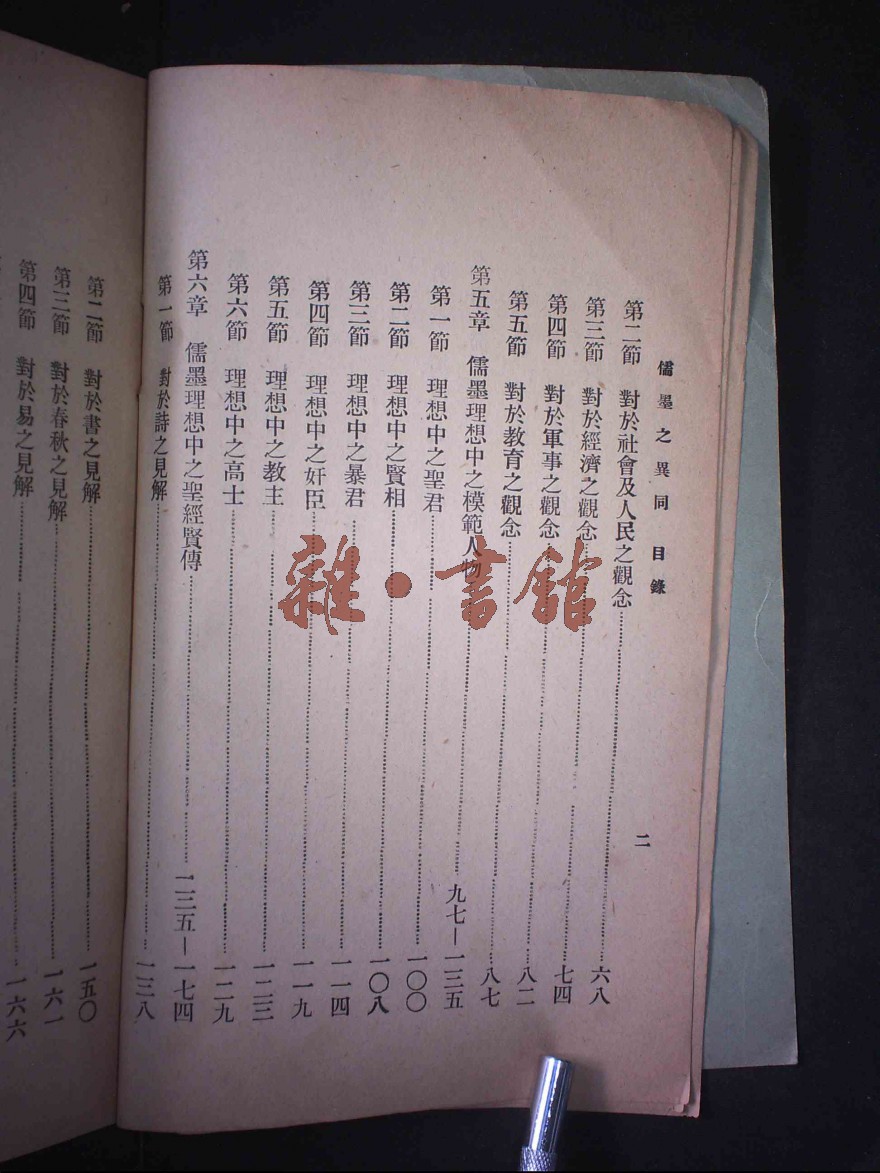 儒墨之異同 目錄
二
第二節 對於社會及人民之觀念……六八
第三節 對於經濟之觀念……七四
第四節 對於軍事之觀念……八二
第五節 對於教育之觀念……八七
第五章 儒墨理想中之模範人物……九七—一三五
第一節 理想中之聖君……一〇〇
第二節 理想中之賢相……一〇八
第三節 理想中之暴君……一一四
第四節 理想中之奸臣……一一九
第五節 理想中之教主……一二三
第六節 理想中之高士……一二九
第六章 儒墨理想中之聖經賢傳……一三五—一七四
第一節 對於詩之見解……一三八
第二節 對於書之見解……一五〇
第三節 對於春秋之見解……一六一
第四節 對於易之見解……一六六
雜·書館